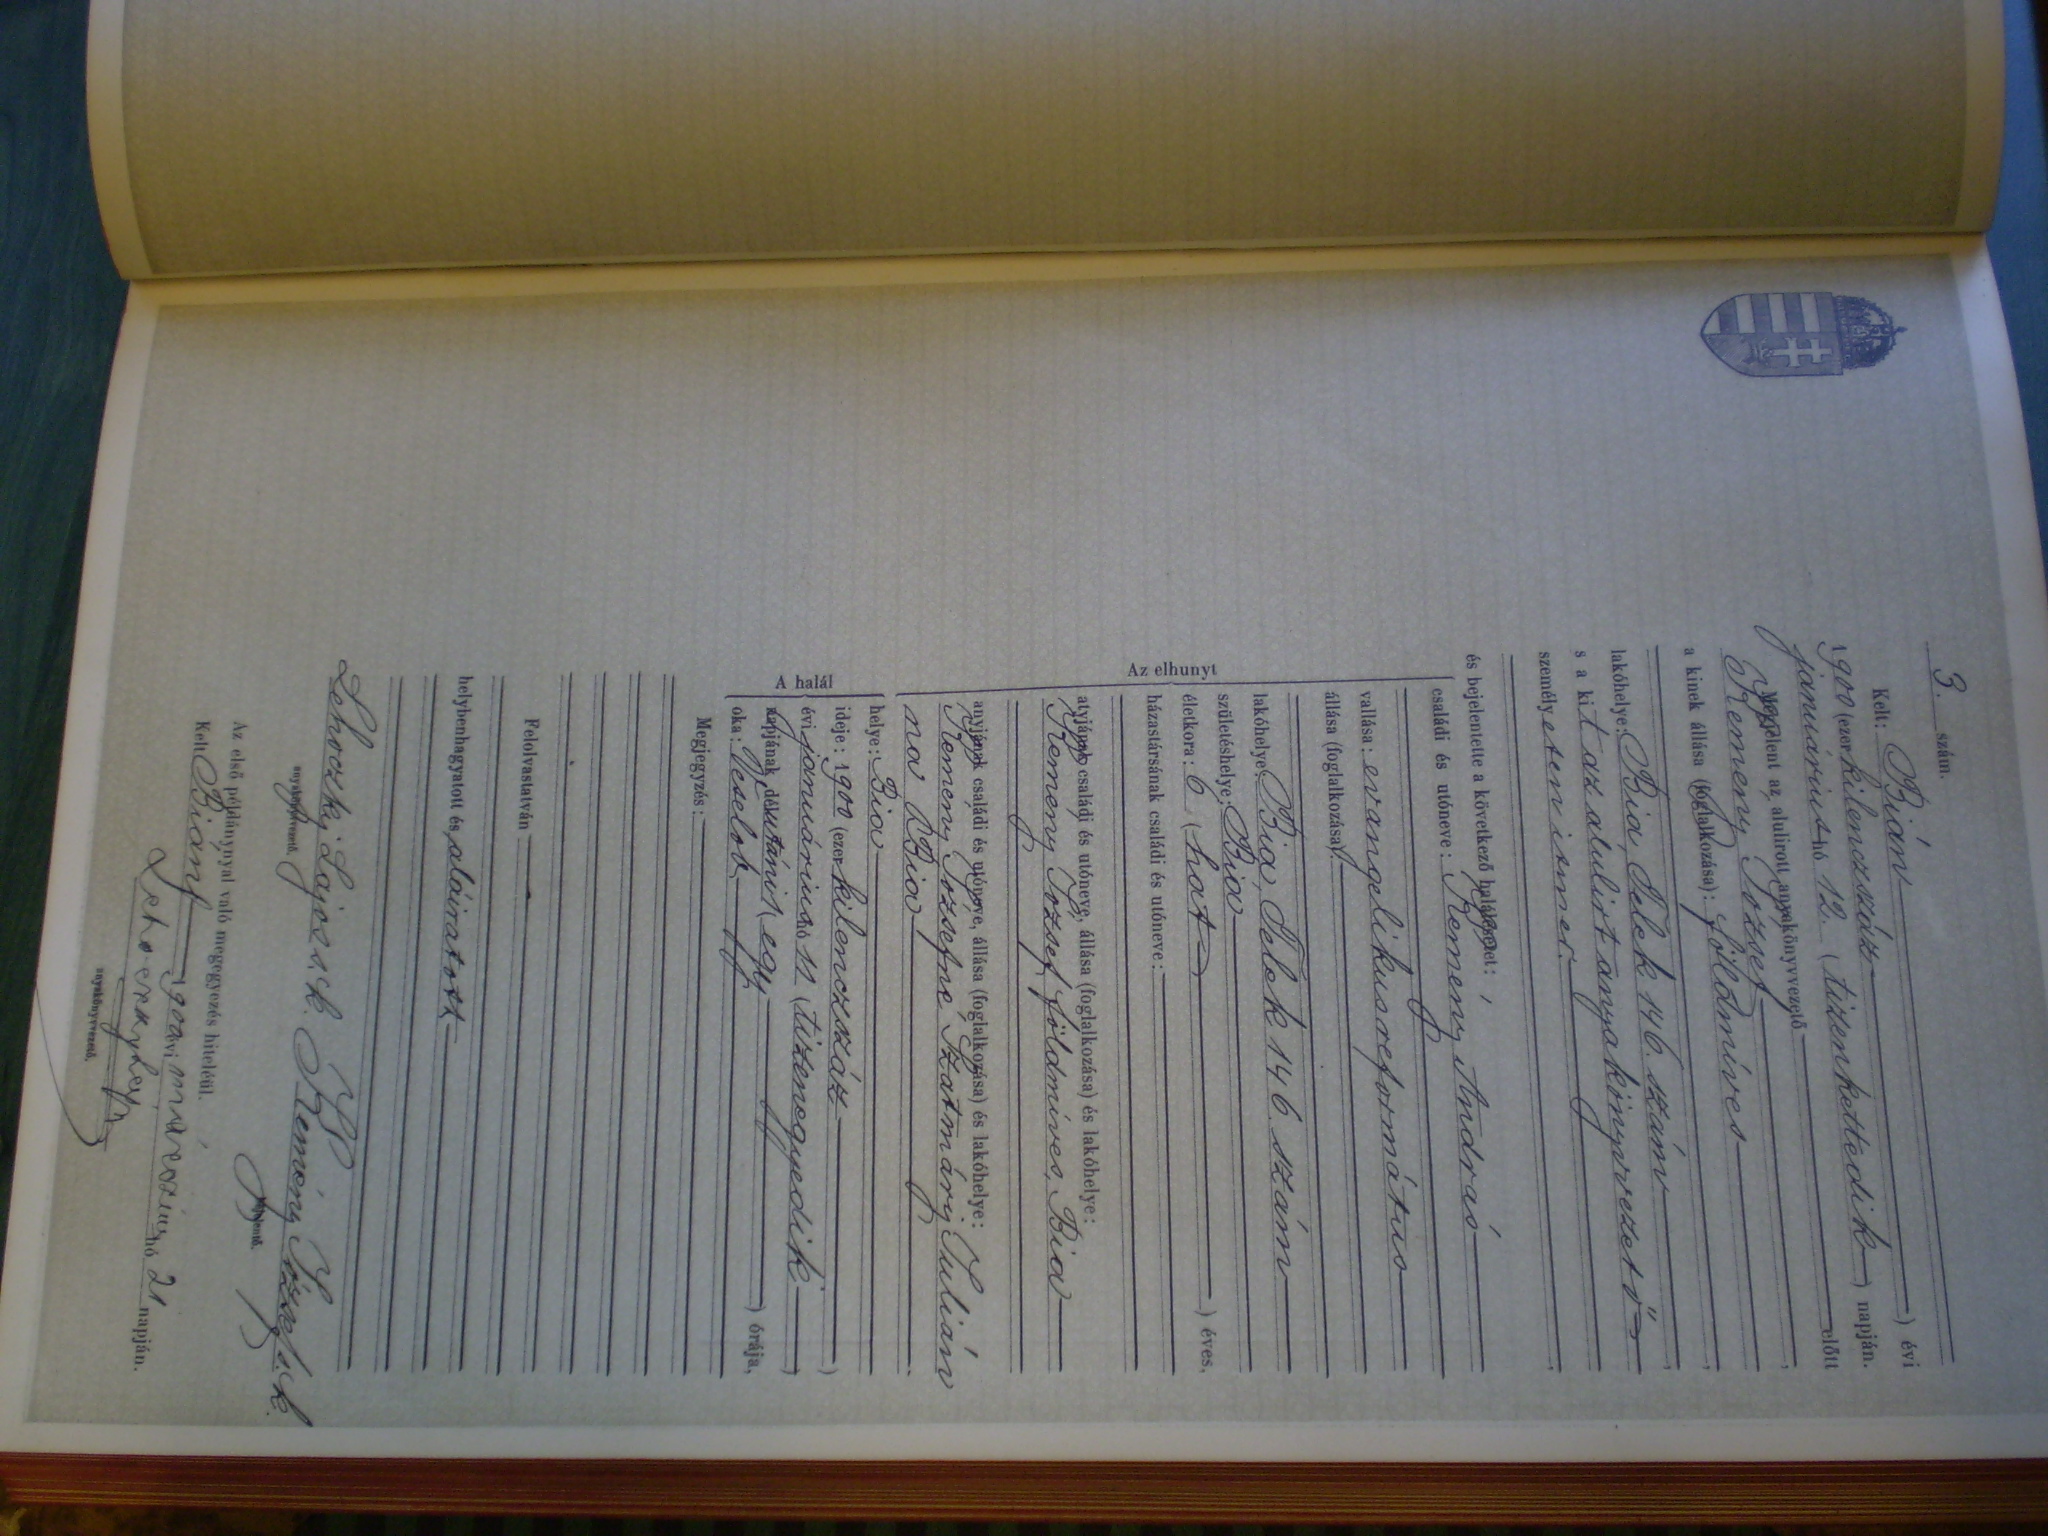 3. szám.
Kelt: Bián ) évi
1900 (ezer kilenczszáz
januárius hó 12. (tizenkettedik ) napján.
Megjelent az alulirott anyakönyvvezető előtt
Kemény József,
a kinek állása (foglalkozása): földmíves,
lakóhelye: Bia, Telek 146. szám,
s a kit az alulirt anyakönyvvezető
személyesen ismer,
és bejelentette a következő halálesetet:
Az elhunyt
családi és utóneve: Kemény András
vallása: evangelikus református
állása (foglalkozása):
lakóhelye: Bia, Telek 146. szám
születéshelye: Bia
életkora: 6 (hat ) éves,
házastársának családi és utóneve:
atyjának családi és utóneve, állása (foglalkozása) és lakóhelye:
Kemény József földmíves, Bia
anyjának családi és utóneve, állása (foglalkozása) és lakóhelye:
Kemény Józsefné, Szatmáry Julián
na Bia
A halál
helye: Bia
ideje: 1900 (ezer kilenczszáz )
évi januárius hó 11 (tizenegyedik )
napjának délutáni 1 (egy ) órája,
oka: Veselob
Megjegyzés:
Felolvastatván
helybenhagyatott és aláiratott
Lehoczky Lajos s. k. Kemény József s. k.
anyakönyvvezető. bejelentő.
Az első példánynyal való megegyezés hiteléül.
Kelt Bián, 1900 évi márczius hó 21 napján.
Lehoczky Lajos
anyakönyvvezető.